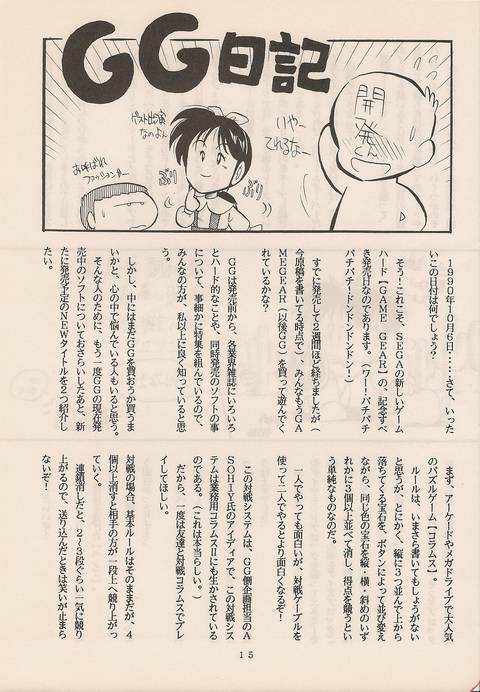 GG日記
開発くん
いやー
てれるなー
ゲスト出演
なのよん
ぷり
ぷり
お呼ばれ
1990年10月6日‥‥‥さて、いった
いこの日付は何でしょう?
そう!これこそ、SEGAの新しいゲーム
ハード【GAME GEAR】の、記念すべ
き発売日なのであります。(ワー!パチパチ
パチパチ!ドンドンドンドン!)
すでに発売して2週間ほど経ちましたが(
今原稿を書いてる時点で)、みんなもうGA
MEGEAR(以後GG)を買って遊んでく
れているかな?
GGは発売前から、各業界雑誌にいろいろ
とハード的なことや、同時発売のソフトの事
について、事細かに特集を組んでいるので、
みんなの方が、私以上に良く知っていると思
う。
しかし、中にはまだGGを買おうか買うま
いかと、心の中で悩んでいる人もいると思う。
そんな人のために、もう一度GGの現在発
売中のソフトについておさらいしたあと、新
たに発売予定のNEWタイトルを2つ紹介し
たい。
まず、アーケードやメガドライブで大人気
のパズルゲーム【コラムス】。
ルールは、いまさら書いてもしょうがない
と思うが、とにかく、縦に3つ並んで上から
落ちてくる宝石を、ボタンによって並び変え
ながら、同じ色の宝石を縦・横・斜めのいず
れかに3個以上並べて消し、得点を競うとい
う単純なものなのだ。
一人でやっても面白いが、対戦ケーブルを
使って二人でやるとより面白くなるぞ!
この対戦システムは、GG側企画担当のA
SOHIY氏のアイディアで、この対戦シス
テムは業務用コラムスⅡにも生かされている
のである。(これは本当らしい。)
だから、一度は友達と対戦コラムスでプレ
イしてほしい。
対戦の場合、基本ルールはそのままだが、4
個以上消すと相手の方が一段上へ競り上がっ
ていく。
連鎖消しだと、2~3段ぐらい一気に競り
上がるので、送り込んだときは笑いが止まら
ないぞ!
15